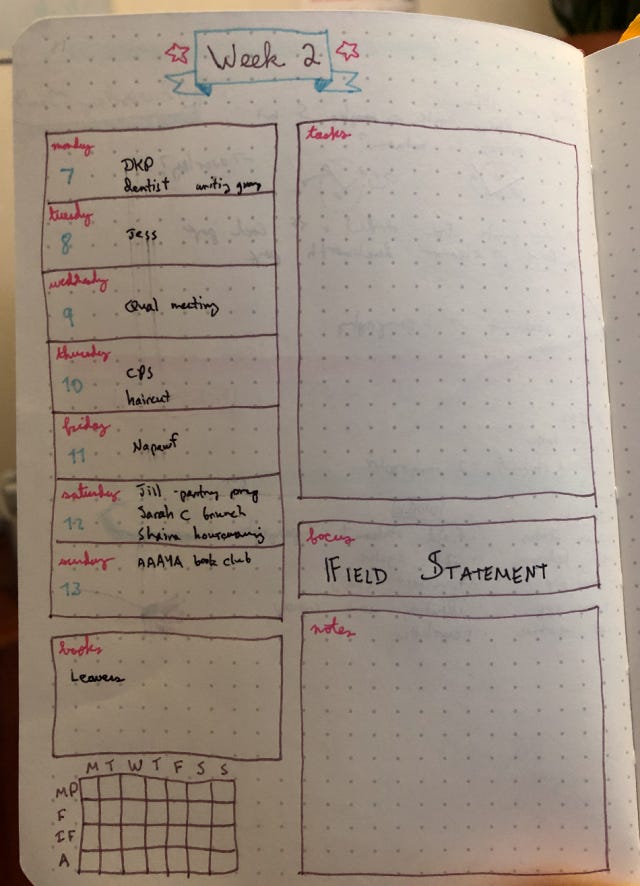 Week 2
monday
7
DKP
dentist writing group
tuesday
8
Jess
wednesday
9
Qual meeting
thursday
10
CPS
haircut
friday
11
saturday
12
Jill - pantry
Sarah C brunch
Shaina housewarming
sunday
13
AAAYA book club
books
Leavers
M T W T F S S
MP
F
IF
A
tasks
focus
FIELD STATEMENT
notes